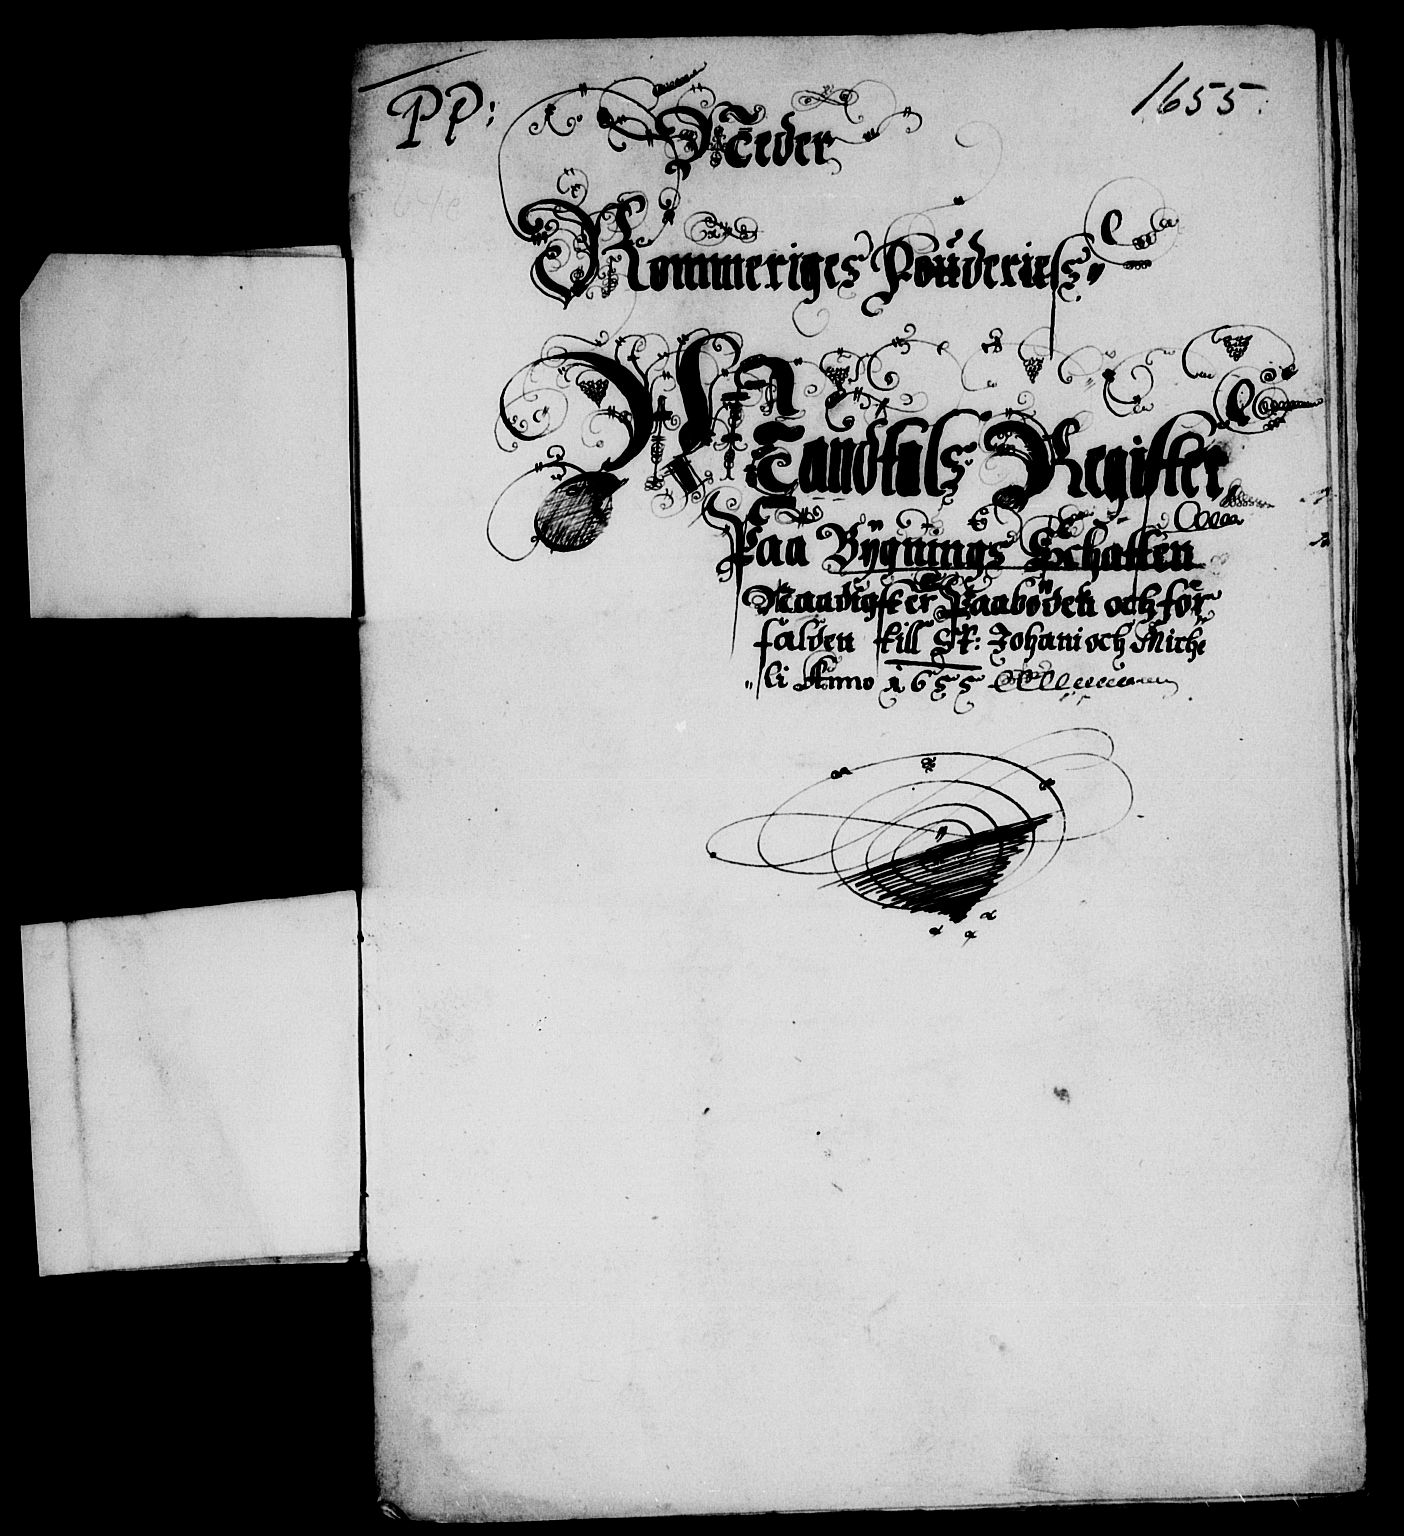 PP:
1655.
Neder
Rommeriges Foùderiess.
Mandtals Register
Paa Bÿgnings Schatten
Naadigster Paabøden och for
falden till St: Johani och Miche
"li Anno 1655